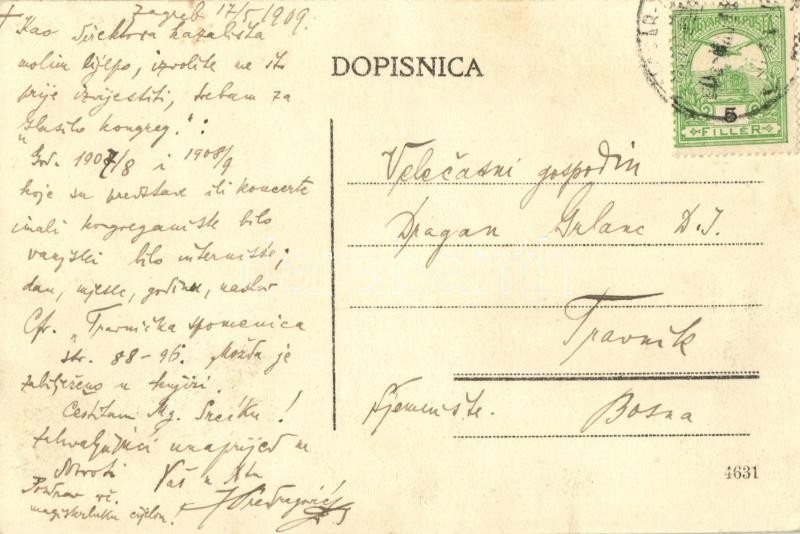 Zagreb 17/5 1909.
+ Kao direktora kazališta
molim lijepo, izvolite me što
prije izvijestiti, trebam za
"Glasilo kongreg.":
"God. 1907/8 i 1908/9
koje su predstave ili koncerte
imali kongreganiste bilo
vanjski bilo interniste;
dan, mjesec, godinu, naslov
Cfr. "Travnička spomenica
str. 88-96. Možda je
zabilježeno u knjizi.
Čestitam Mg. Srećku!
zahvaljujući unaprijed na
Vaš u
Pozdrav
cijelom!
DOPISNICA
MAGYAR KIR. POSTA
5
FILLÉR
Velečasni gospodin
Dragan Grlanc D.I.
Travnik
Sjemenište.
Bosna
4631